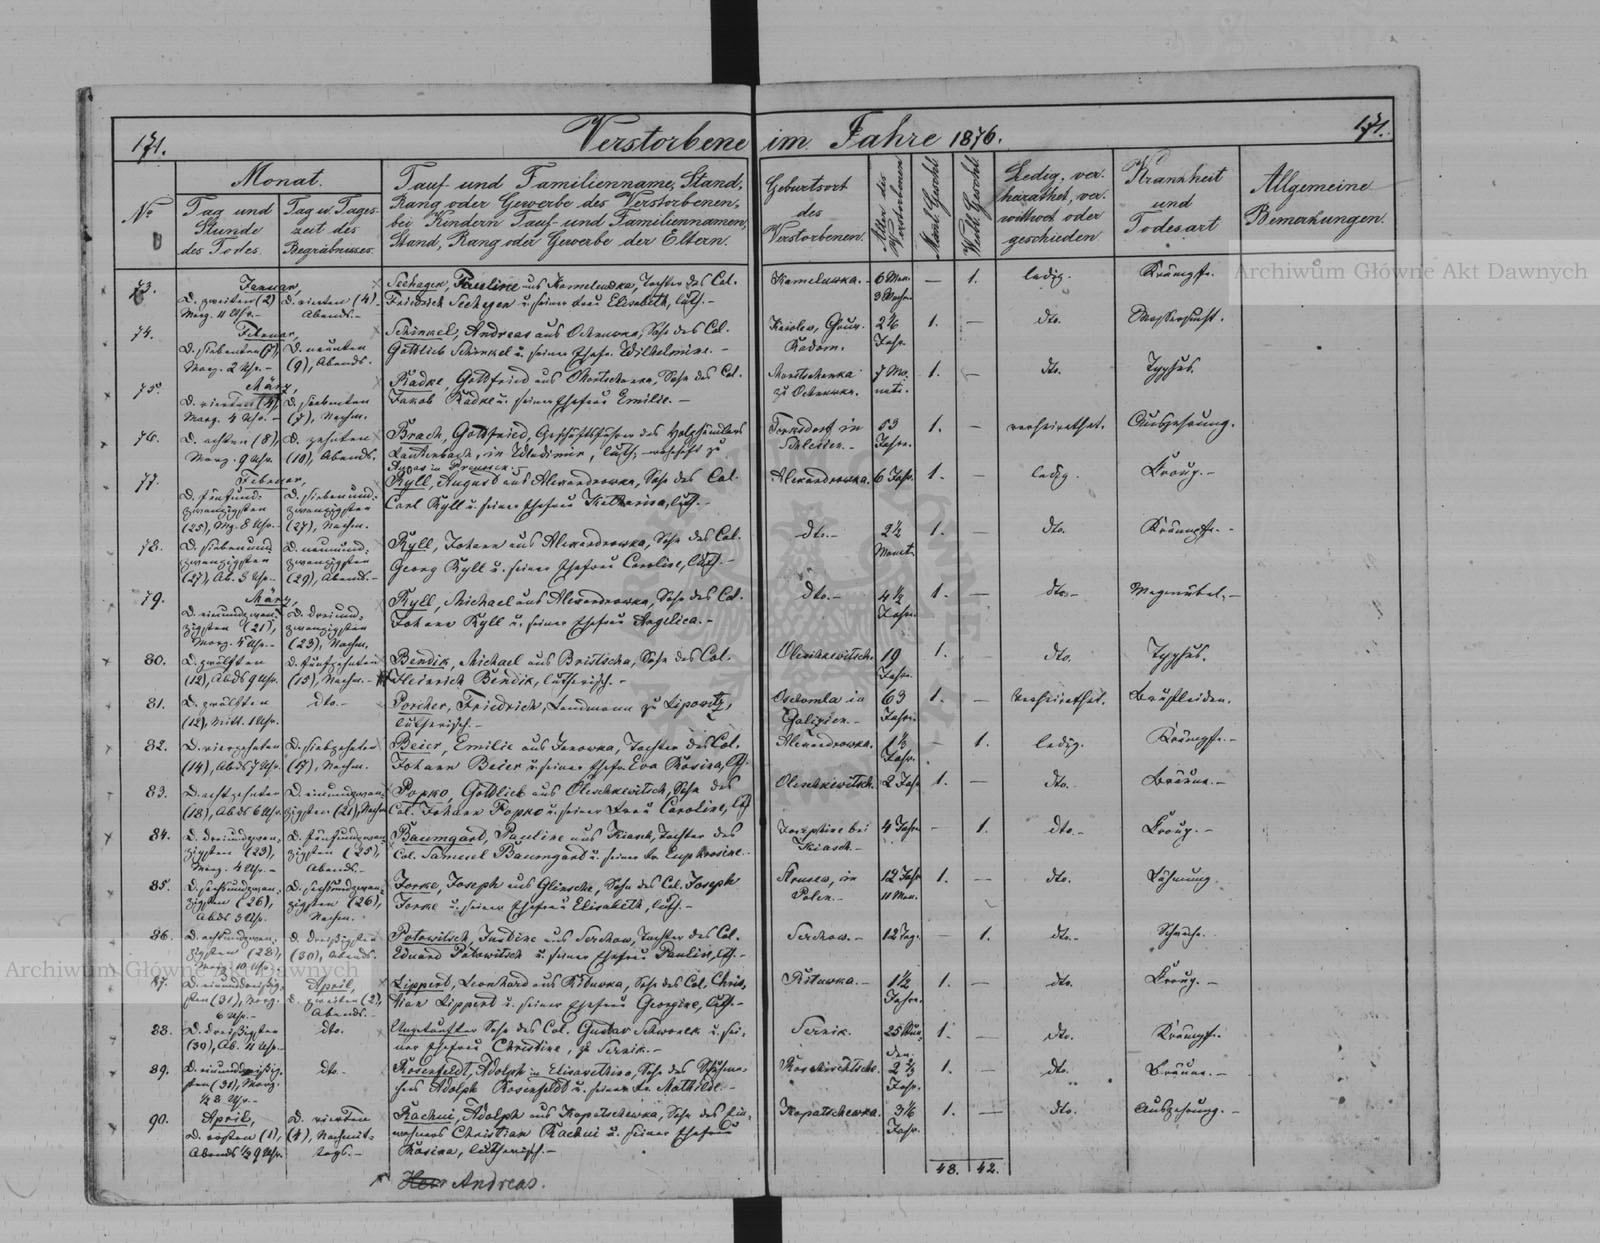 171.
Verstorbene im Jahre 1876.
171.
No
Monat.
Tag und Stunde des Todes.
Tag u. Tageszeit des Begräbnisses.
Tauf- und Familienname, Stand,
Rang oder Gewerbe des Verstorbenen,
bei Kindern Tauf- und Familiennamen,
Stand, Rang oder Gewerbe der Eltern.
Geburtsort
des
Verstorbenen.
Alter des Verstorbenen
Männl. Geschl.
Weibl. Geschl.
Ledig, ver-
heirathet, ver-
wittwet oder
geschieden
Krankheit
und
Todesart
Allgemeine
Bemerkungen.
73. Januar,
D. zweiten (2) Morg. 11 Uhr. D. vierten (4) Abends.
Seehagen, Pauline aus Kameluwka, Tochter des Col.
Friedrich Seehagen u. seiner Frau Elisabeth, luth.
Kameluwka. 6 Mon. 3 Woch. — 1. ledig. Krämpfe.
74. Februar,
D. siebenten (7), Morg. 2 Uhr. D. neunten (9), Abends.
Schinkel, Andreas aus Ostruwka, Sohn des Col.
Gottlieb Schinkel u. seiner Ehefr. Wilhelmine.
Gouv. Radom. Jahr. 1. — dto. Wassersucht.
75. März,
D. vierten (4), Morg. 4 Uhr. D. siebenten (7), Nachm.
Radke, Gottfried aus, Sohn des Col.
Jakob Radke u. seiner Ehefrau Emilie.
zu Ostruwka. 7 Monate. 1. — dto. Typhus.
76. D. achten (8), Morg. 9 Uhr. D. zehnten (10), Abends.
Brach, Gottfried, Geschäftsführer des Holzhändlers
Lautenbach, in Wladimir, luth.
in Preussen
in Schlesien. 53 Jahre. 1. — verheirathet. Auszehrung.
77. Februar,
D. fünfundzwanzigsten (25), Mg. 8 Uhr. D. siebenundzwanzigsten (27), Nachm.
Ryll, August aus Alexandrowka, Sohn des Col.
Carl Ryll u. seiner Ehefrau Katharina, luth.
Alexandrowka. 6 Jahr. 1. — ledig. Kroup.
78. D. siebenundzwanzigsten (27), Ab. 5 Uhr. D. neunundzwanzigsten (29), Abends.
Ryll, Johann aus Alexandrowka, Sohn des Col.
Georg Ryll u. seiner Ehefrau Caroline, luth.
dto. 2½ Monat. 1. — dto. Krämpfe.
79. März,
D. einundzwanzigsten (21), Morg. 4 Uhr. D. dreiundzwanzigsten (23), Nachm.
Ryll, Michael aus Alexandrowka, Sohn des Col.
Johann Ryll u. seiner Ehefrau Angelica.
dto. 4½ Jahr. 1. — dto. Magenübel.
80. D. zwölften (12), Abds 9 Uhr. D. fünfzehnten (15), Nachm.
Bendik, Michael aus Bristscha, Sohn des Col.
Heinrich Bendik, lutherisch.
Oleschkewitsch. 19 Jahr. 1. — dto. Typhus.
81. D. zwölften (12), Mitt. 1 Uhr. dto.
Porcher, Friedrich, Landmann zu Lipowitz,
lutherisch.
in Galizien. 63 Jahr. 1. — verheirathet. Brustleiden.
82. D. vierzehnten (14), Abds 7 Uhr. D. siebzehnten (17), Nachm.
Beier, Emilie aus Janowka, Tochter des Col.
Johann Beier u. seiner Ehefr. Eva Rosina, luth.
Alexandrowka. 1½ Jahr. — 1. ledig. Krämpfe.
83. D. achtzehnten (18), Abds 6 Uhr. D. einundzwanzigsten (21), Nachm.
Popko, Gottlieb aus Oleschkewitsch, Sohn des
Col. Johann Popko u. seiner Frau Caroline, luth.
Oleschkewitsch. 2 Jahr. 1. — dto. Bräune.
84. D. dreiundzwanzigsten (23), Morg. 4 Uhr. D. fünfundzwanzigsten (25), Abends.
Baumgart, Pauline aus Kiasch, Tochter des
Col. Samuel Baumgard u. seiner Fr. Euphrosine.
Josephine bei Kiasch. 4 Jahr. — 1. dto. Kroup.
85. D. sechsundzwanzigsten (26), Abds 3 Uhr. D. sechsundzwanzigsten (26), Nachm.
Jorke, Joseph aus Glinsche, Sohn des Col. Joseph
Jorke u. seiner Ehefrau Elisabeth, luth.
in Polen. 12 Jahr 11 Mon. 1. — dto. Lähmung.
86. D. achtundzwanzigsten (28), Morg. 10 Uhr. D. dreißigsten (30), Abends.
Potowitsch, Justine aus Serchow, Tochter des Col.
Eduard Potowitsch u. seiner Ehefrau Pauline, luth.
Serchow. 12 Tag. — 1. dto. Schwäche.
87. D. einunddreißigsten (31), Morg. 6 Uhr. April, D. zweiten (2), Abends.
Lippert, Leonhard aus Rituwka, Sohn des Col. Chris-
tian Lippert u. seiner Ehefrau Georgine, luth.
Rituwka. 1½ Jahre. 1. — dto. Kroup.
88. D. dreißigsten (30), Ab. 11 Uhr. dto.
Ungetaufter Sohn des Col. Gustav Schwanek u. sei-
ner Ehefrau Christine, zu Sernik.
Sernik. 25 Stunden. 1. — dto. Krämpfe.
89. D. einunddreißigsten (31), Morg. ½ 8 Uhr. dto.
Rosenfeldt, Adolph in Elisawethino, Sohn des
Adolph Rosenfeldt u. seiner Fr. Mathilde.
Jahr. 1. — dto. Bräune.
90. April,
D. ersten (1), Abends ½ 9 Uhr. D. vierten (4), Nachmittags.
Rachui, Adolph aus Kopatschewka, Sohn des Ein-
wohners Christian Rachui u. seiner Ehefrau
Rosina, lutherisch.
Kopatschewka. 3½ Jahr. 1. — dto. Auszehrung.
48. 42.
Herr Andreas.
Archiwum Główne Akt Dawnych
Archiwum Główne Akt Dawnych